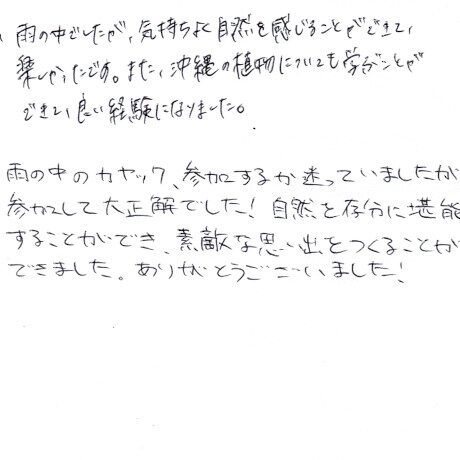 雨の中でしたが、気持ちよく自然を感じることができて、
楽しかったです。また、沖縄の植物についても学ぶことが
できて、良い経験になりました。
雨の中のカヤック、参加するか迷っていましたが
参加して大正解でした！自然を存分に堪能
することができ、素敵な思い出をつくることが
できました。ありがとうございました！